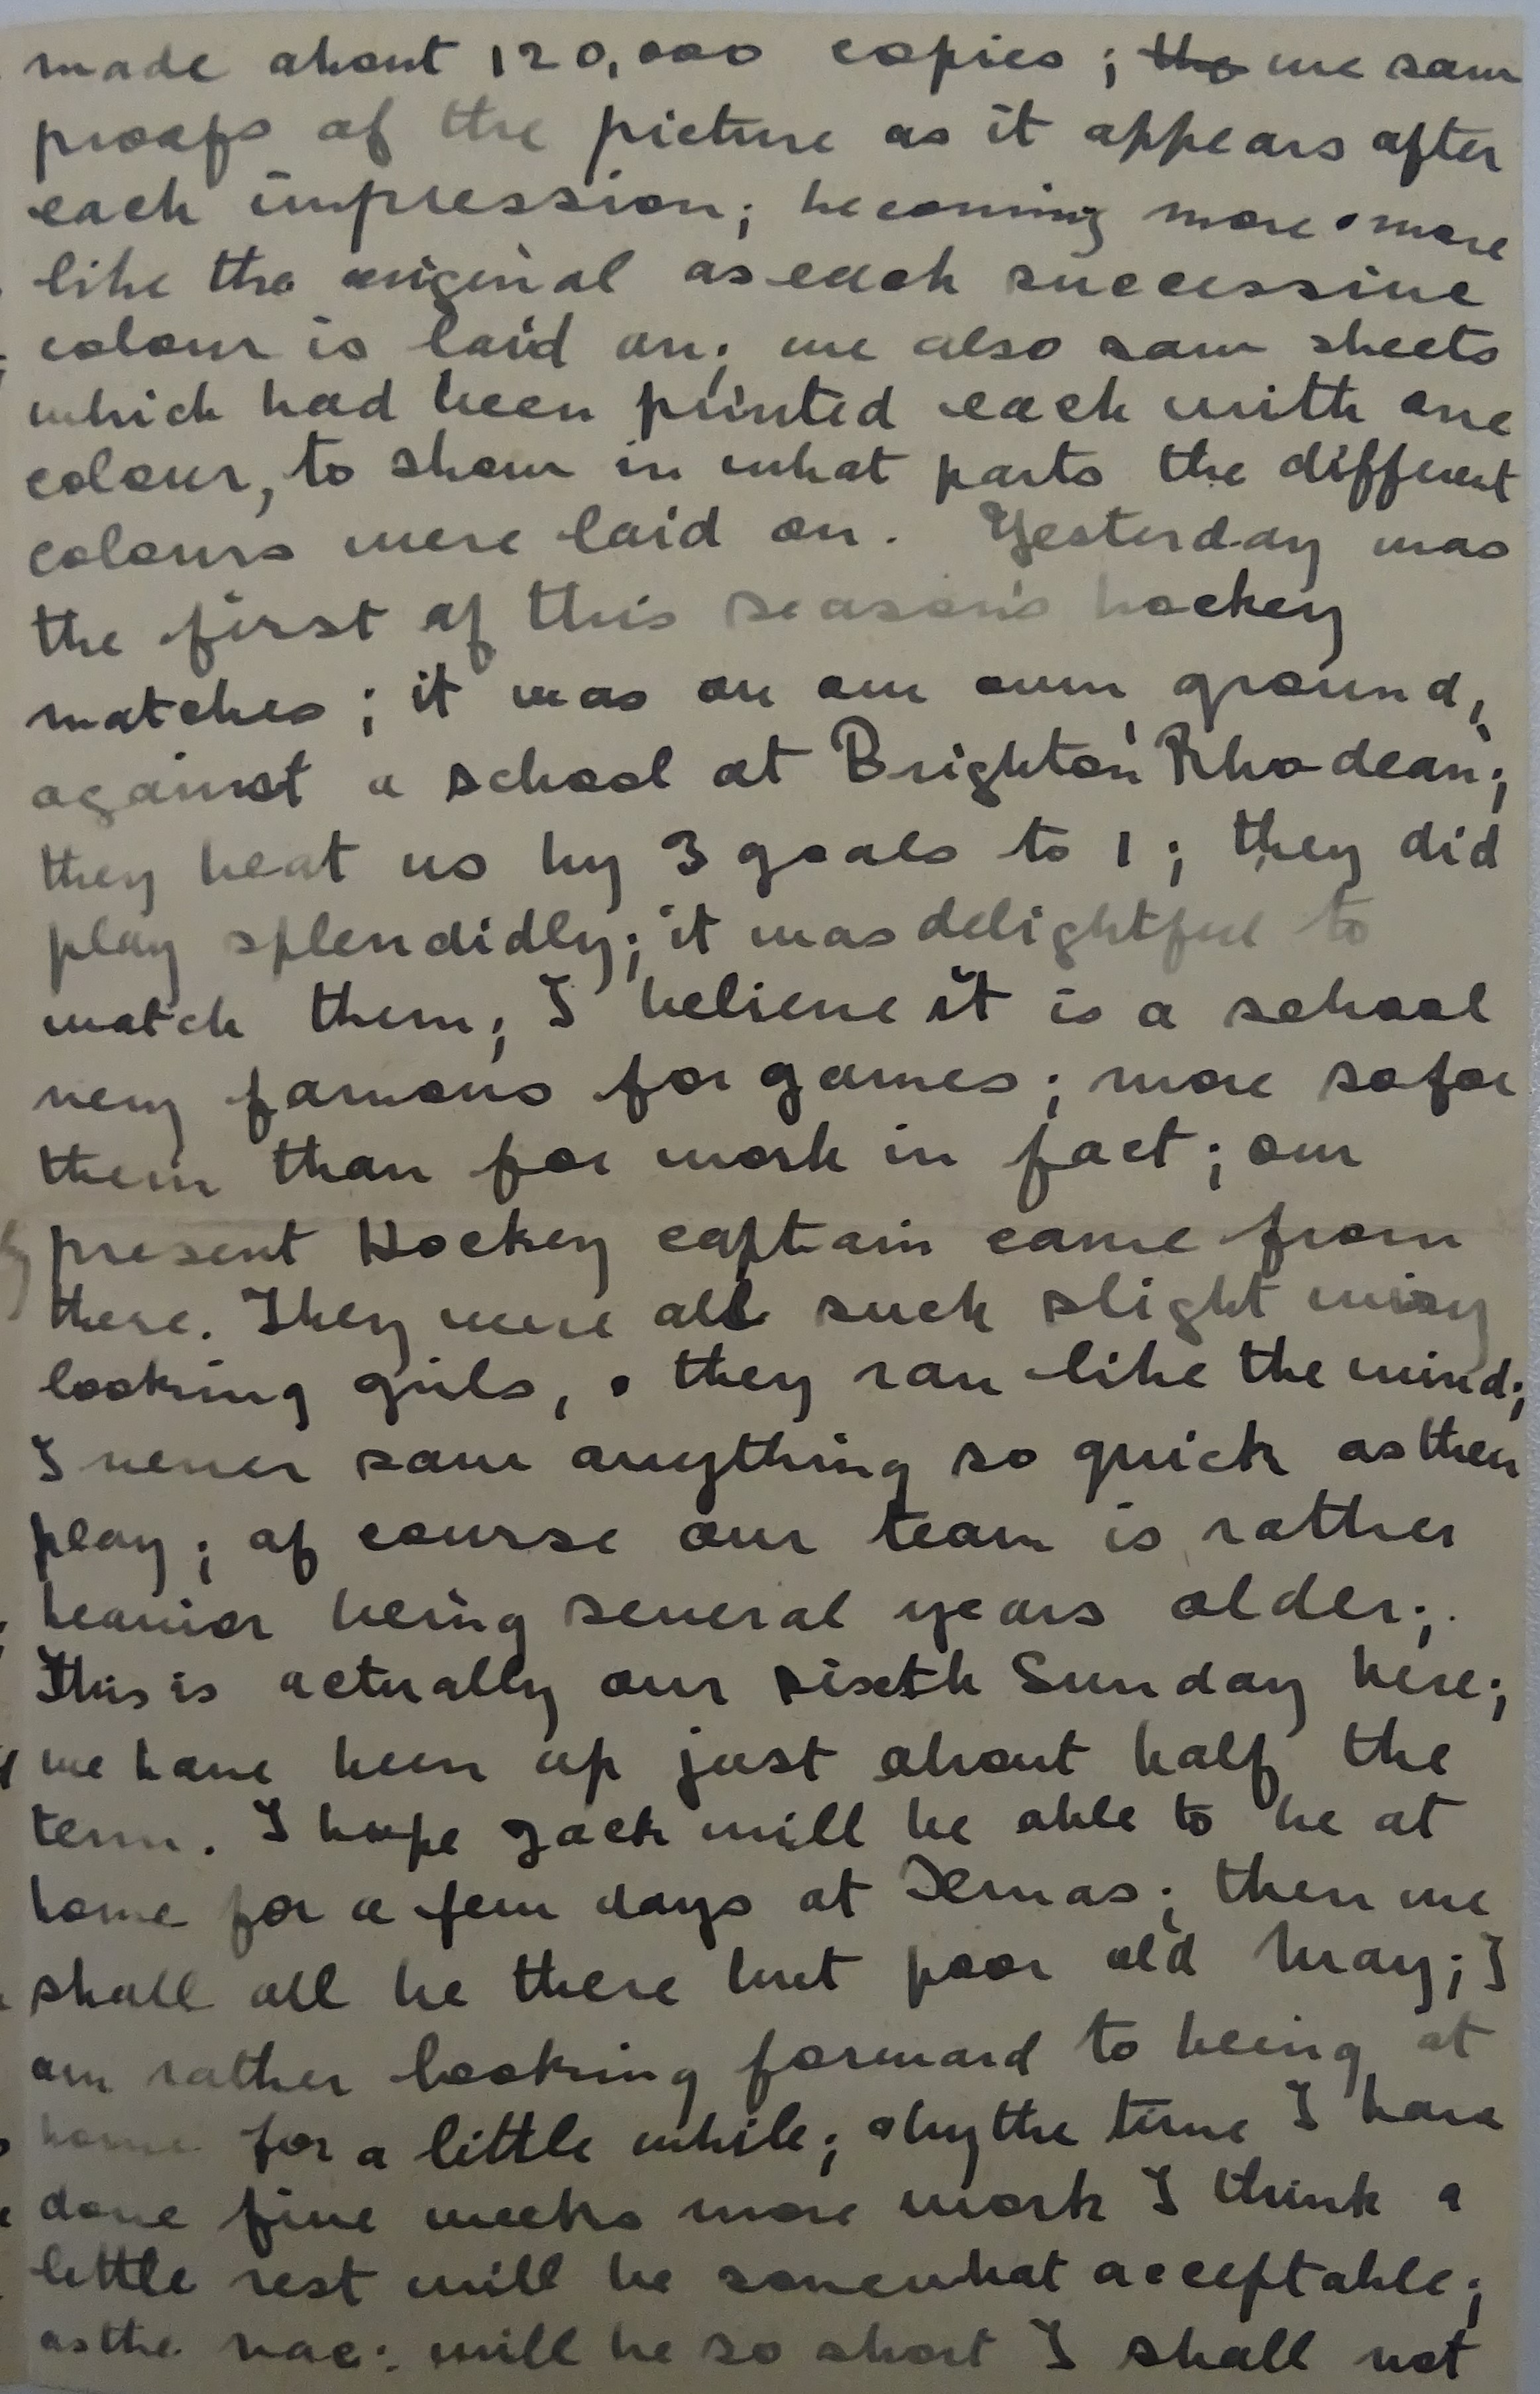 made about 120,000 copies; the we saw
proofs of the picture as it appears after
each impression; becoming more & more
like the original as each successive
colour is laid on; we also saw sheets
which had been printed each with one
colour, to show in what parts the different
colours were laid on. Yesterday was
the first of this season's hockey
matches; it was on our own ground,
against a school at Brighton 'Rhodean';
they beat us by 3 goals to 1; they did
play splendidly; it was delightful to
watch them; I believe it is a school
very famous for games; more so for
them than for work in fact; our
present Hockey captain came from
there. They were all such slight wiry
looking girls, & they ran like the wind;
I never saw anything so quick as their
play; of course our team is rather
heavier being several years older;.
This is actually our sixth Sunday here;
we have been up just about half the
term. I hope Jack will be able to be at
home for a few days at Xmas; then we
shall all be there but poor old May; I
am rather looking forward to being at
home for a little while; & by the time I have
done five weeks more work I think a
little rest will be somewhat acceptable;
as the vac: will be so short I shall not